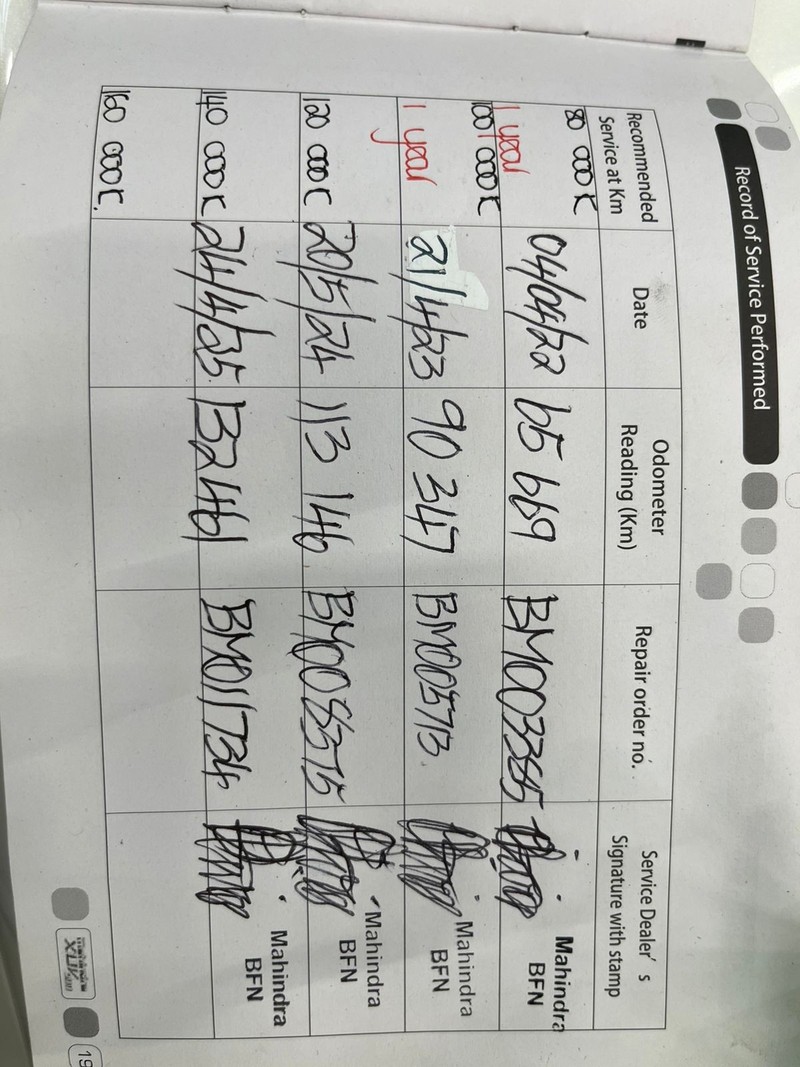 Record of Service Performed
Recommended Service at Km
Date
Odometer Reading (Km)
Repair order no.
Service Dealer's Signature with stamp
80 000K 04/04/22 65 669 BM003385 Mahindra BFN
1 year
100 000K 21/4/23 90 347 BM005713. Mahindra BFN
1 year
120 000K 20/5/24 113 146. BM008575 Mahindra BFN
140 000K 24/4/25. 132461 BM011734 Mahindra BFN
160 000K.
19